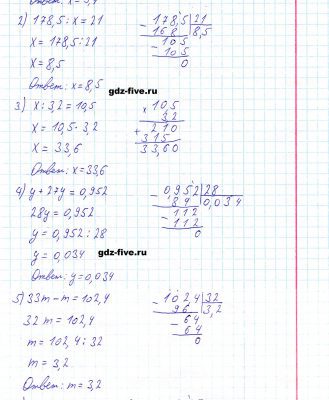 Ответ: x = 3,4
2) 178,5 : x = 21
x = 178,5 : 21
x = 8,5
Ответ: x = 8,5
178,5 | 21
168 | 8,5
- 105
105
0
gdz-five.ru
3) x : 3,2 = 10,5
x = 10,5 · 3,2
x = 33,6
Ответ: x = 33,6
x 10,5
3,2
+ 210
315
33,60
4) y + 27y = 0,952
28y = 0,952
y = 0,952 : 28
y = 0,034
Ответ: y = 0,034
- 0,952 | 28
84 | 0,034
- 112
112
0
gdz-five.ru
5) 33m - m = 102,4
32m = 102,4
m = 102,4 : 32
m = 3,2
Ответ: m = 3,2
- 102,4 | 32
96 | 3,2
- 64
64
0